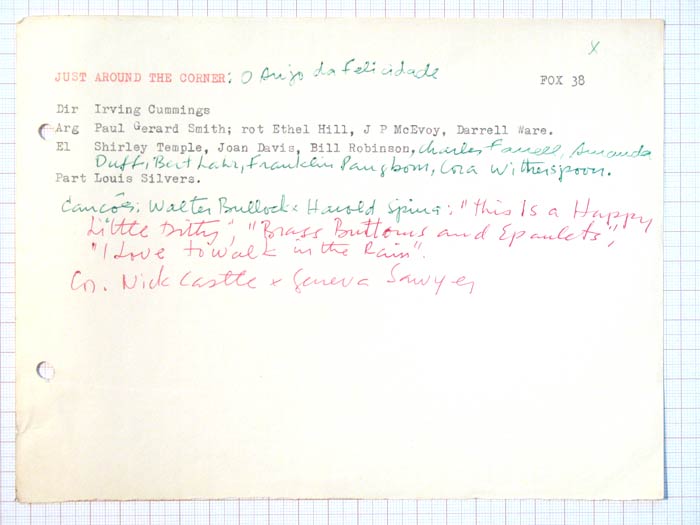 x
JUST AROUND THE CORNER: O Anjo da Felicidade FOX 38
Dir Irving Cummings
Arg Paul Gerard Smith; rot Ethel Hill, J P McEvoy, Darrell Ware.
El Shirley Temple, Joan Davis, Bill Robinson, Charles Farrell, Amanda
Duff, Bert Lahr, Franklin Pangborn, Cora Witherspoon.
Part Louis Silvers.
Canções: Walter Bullock x Harold Spina: "This Is a Happy
Little Ditty", "Brass Buttons and Epaulets",
"I Love to Walk in the Rain".
Co. Nick Castle x Geneva Sawyer